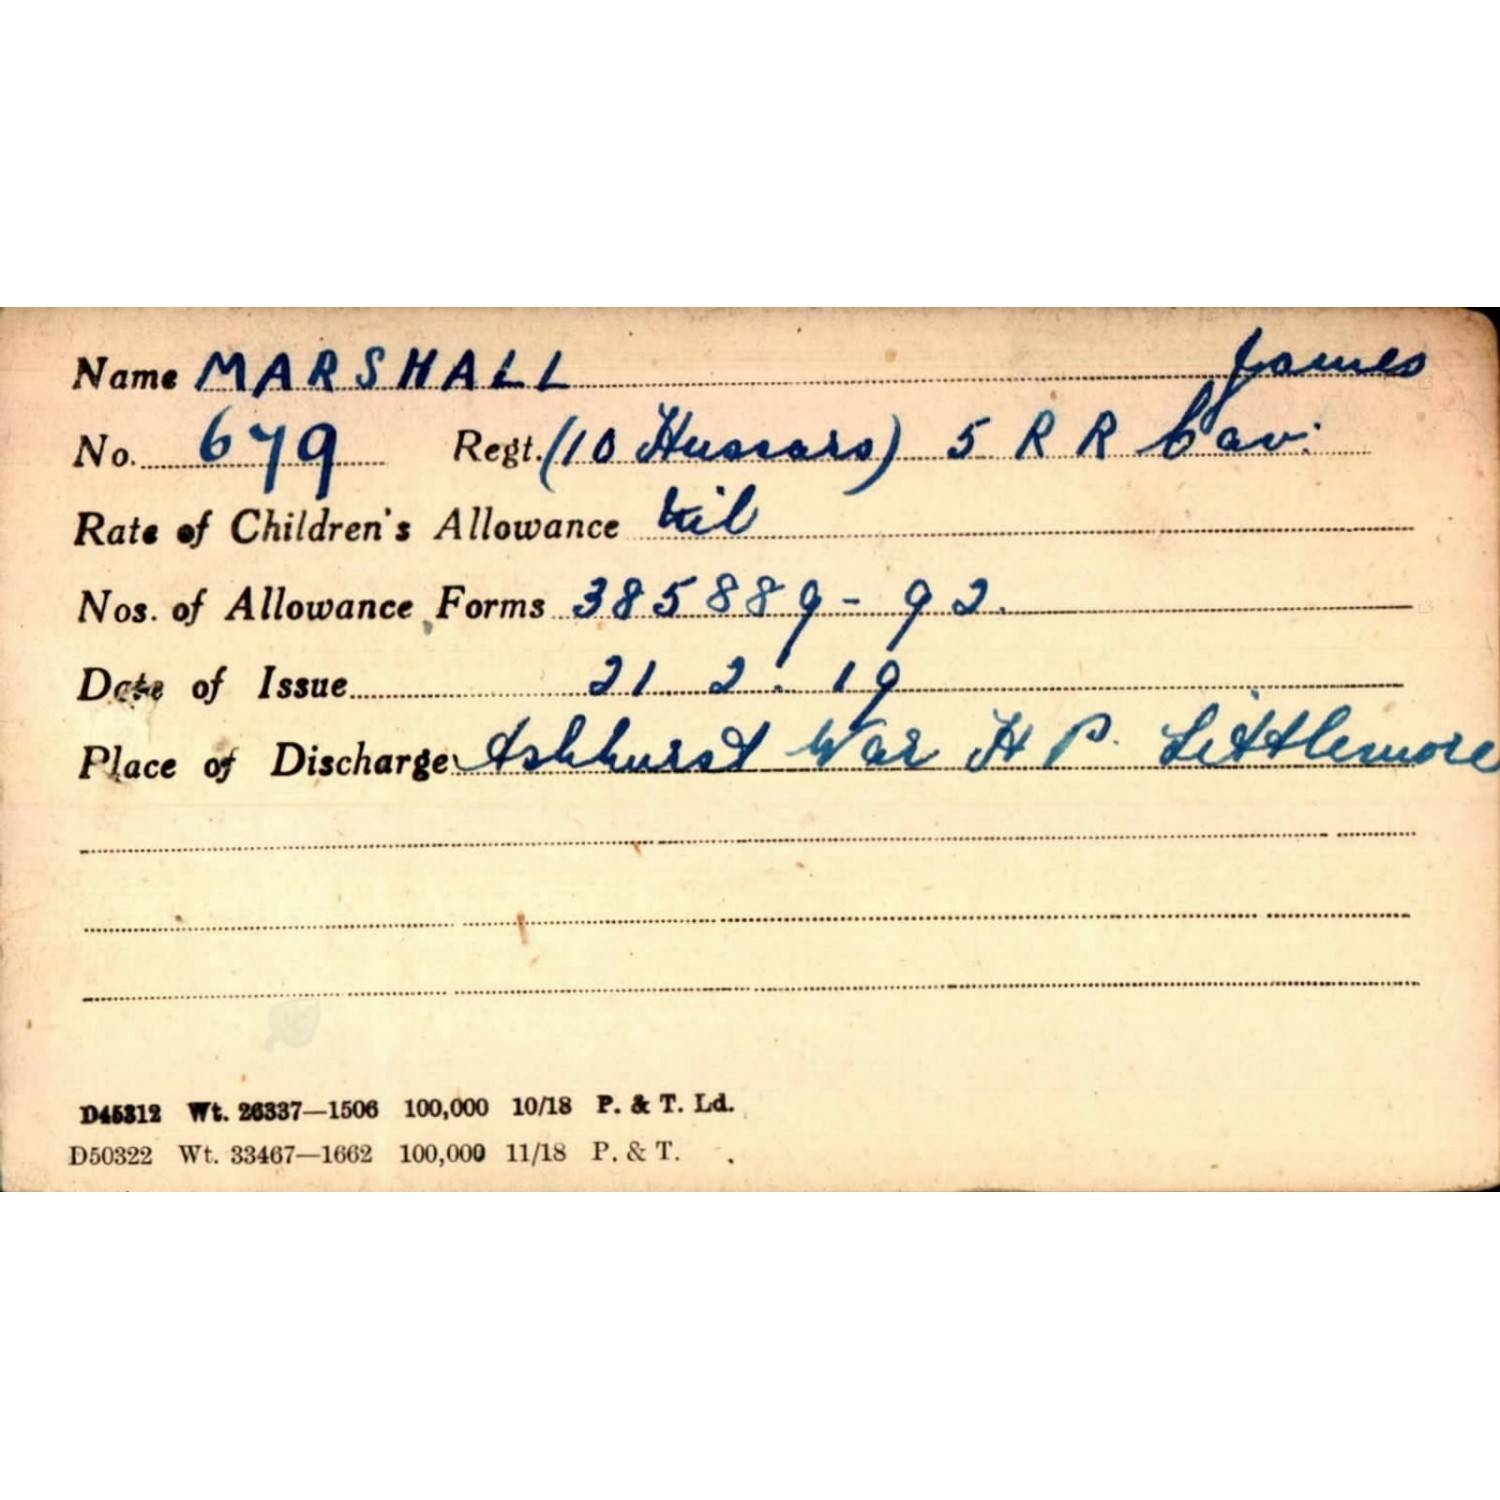 Name MARSHALL James
No. 679 Regt. (10 Hussars) 5 R R Cav:
Rate of Children's Allowance Nil
Nos. of Allowance Forms 385889 - 92.
Date of Issue 21. 2. 19
Place of Discharge Ashhurst War H P. Littlemore
D45312 Wt. 26337—1506 100,000 10/18 P. & T. Ld.
D50322 Wt. 33467—1662 100,000 11/18 P. & T.